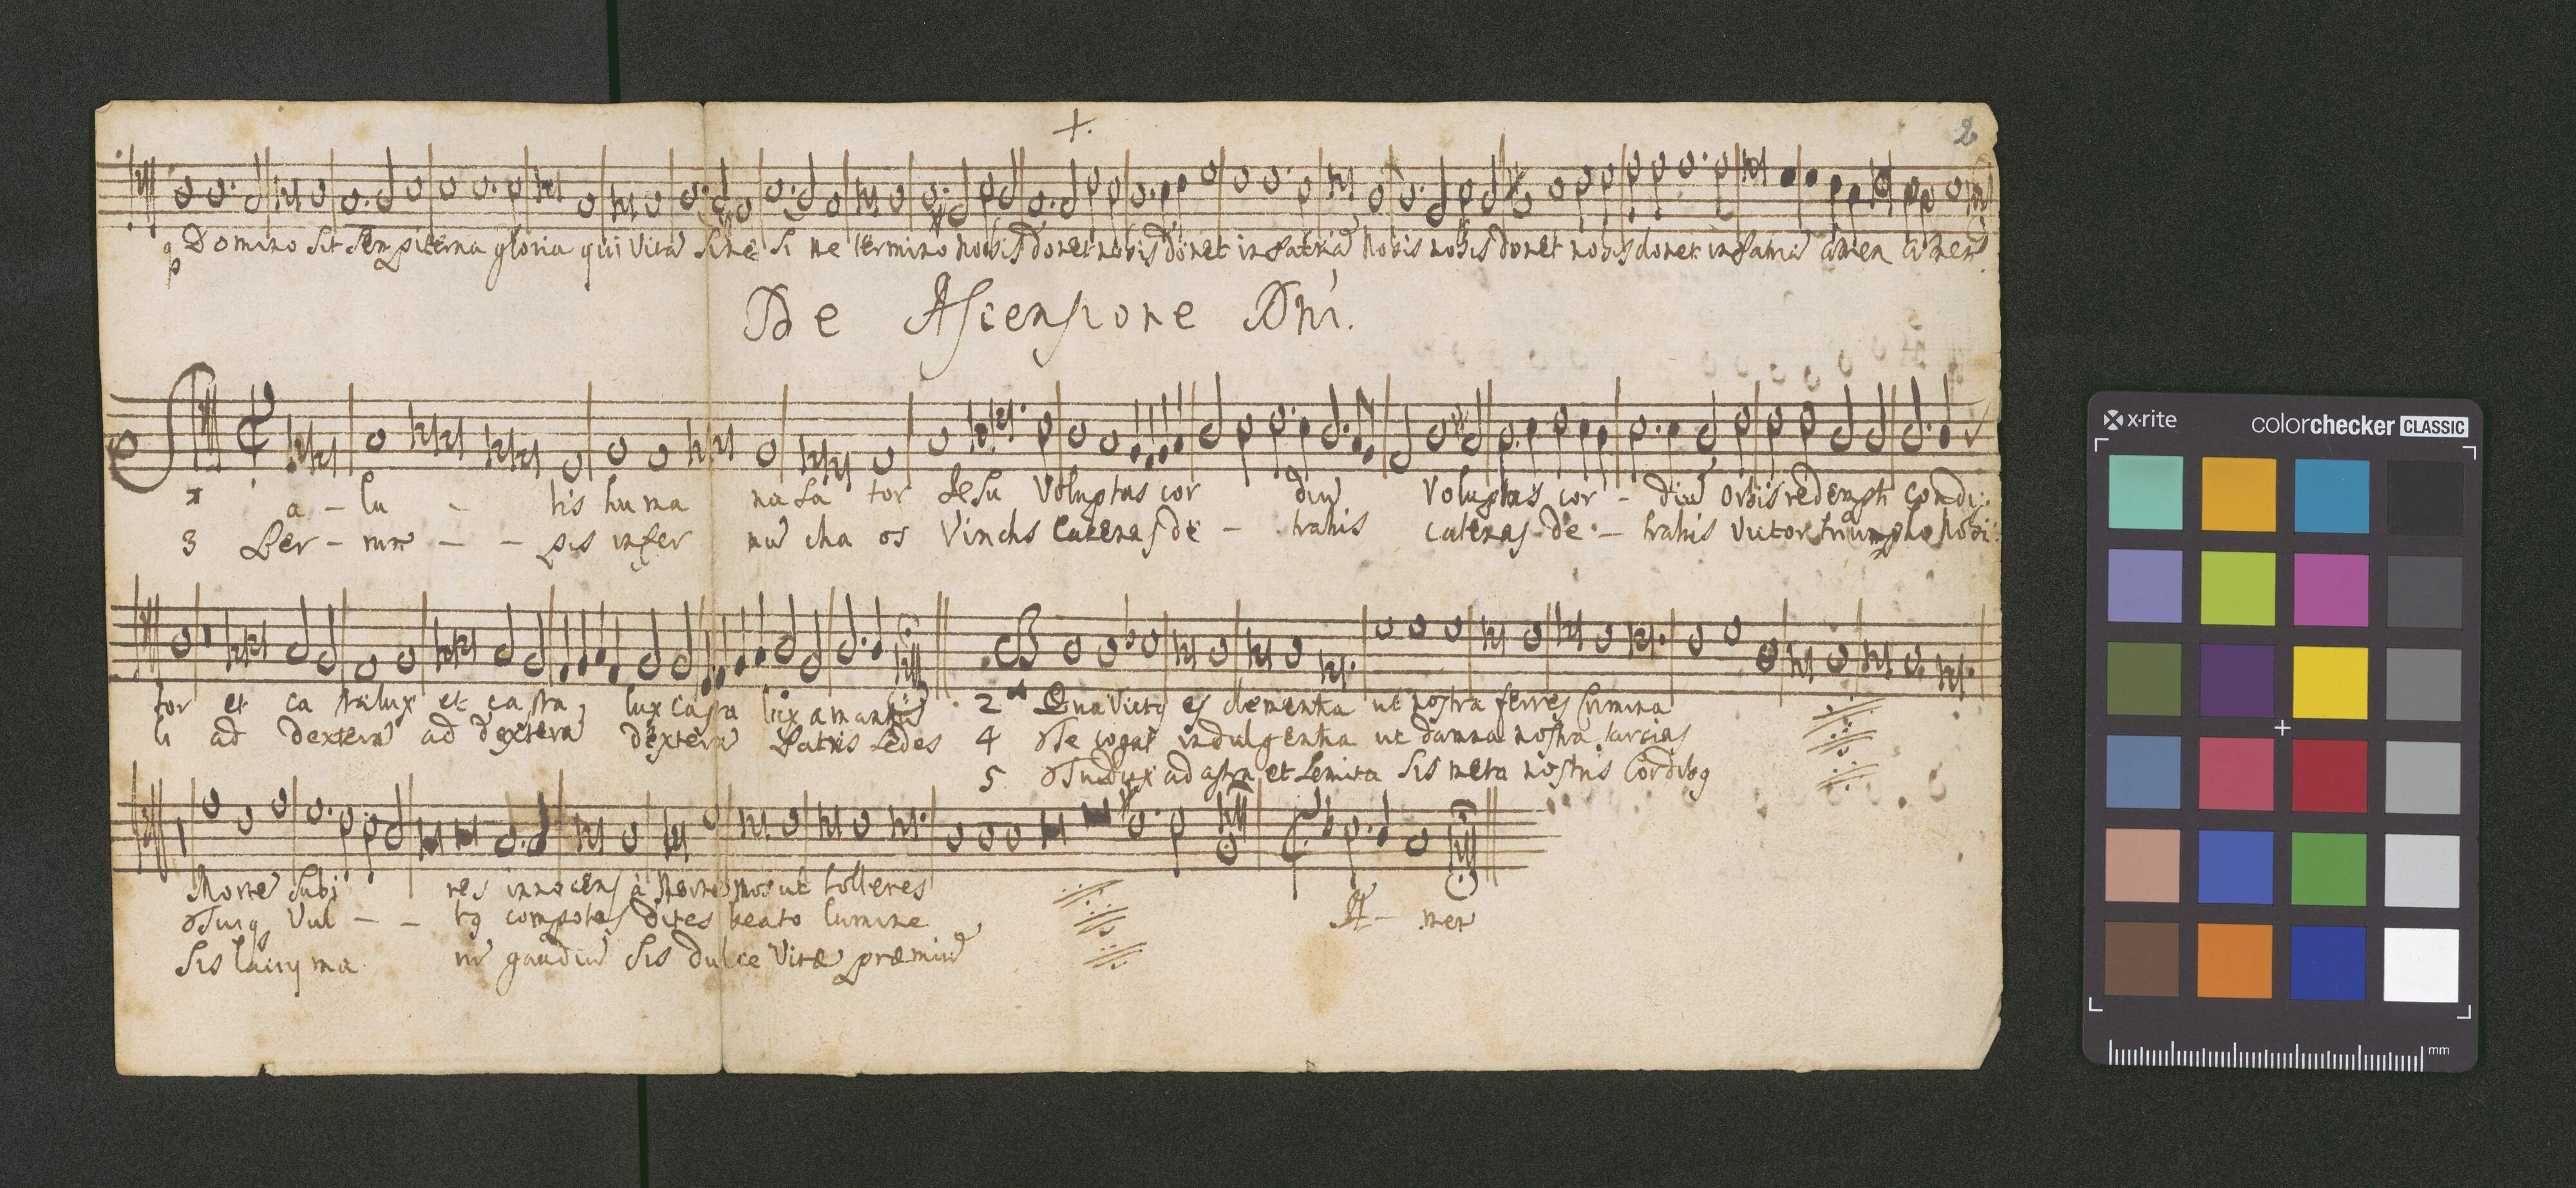 +.
2
Domino sit sempiterna gloria qui vitã sine si ne termino nobis donet nobis donet in patriã nobis nobis donet nobis donet in patriã amen amen
De Ascensione Dñi.
a - lu - tis huma na sa tor Jesu Voluptas cor diũ Voluptas cor - diũ orbis redempti condi:
3 Per - rum - - pis infer nũ cha os Vinctis catenas de - trahis catenas de - trahis victor triumpho nobi:
tor et ca stalux et casta lux casta lux amantiũ
li ad dexterã ad dexterã dexterã Patris sedes
2 Qua Victus es clementia ut nostra ferres crimina
4 Te cogat indulgentia ut damna nostra sarcias
5 Tu dux ad astra et semita sis meta nostris cordibq
Morte subi res innocens à Morte nos ut tolleres
Tuiq Vul - - tq compotes dites beato lumine
Sis lacryma rũ gaudiũ sis dulce Vitæ præmiũ
A - men
x·rite
colorchecker CLASSIC
mm